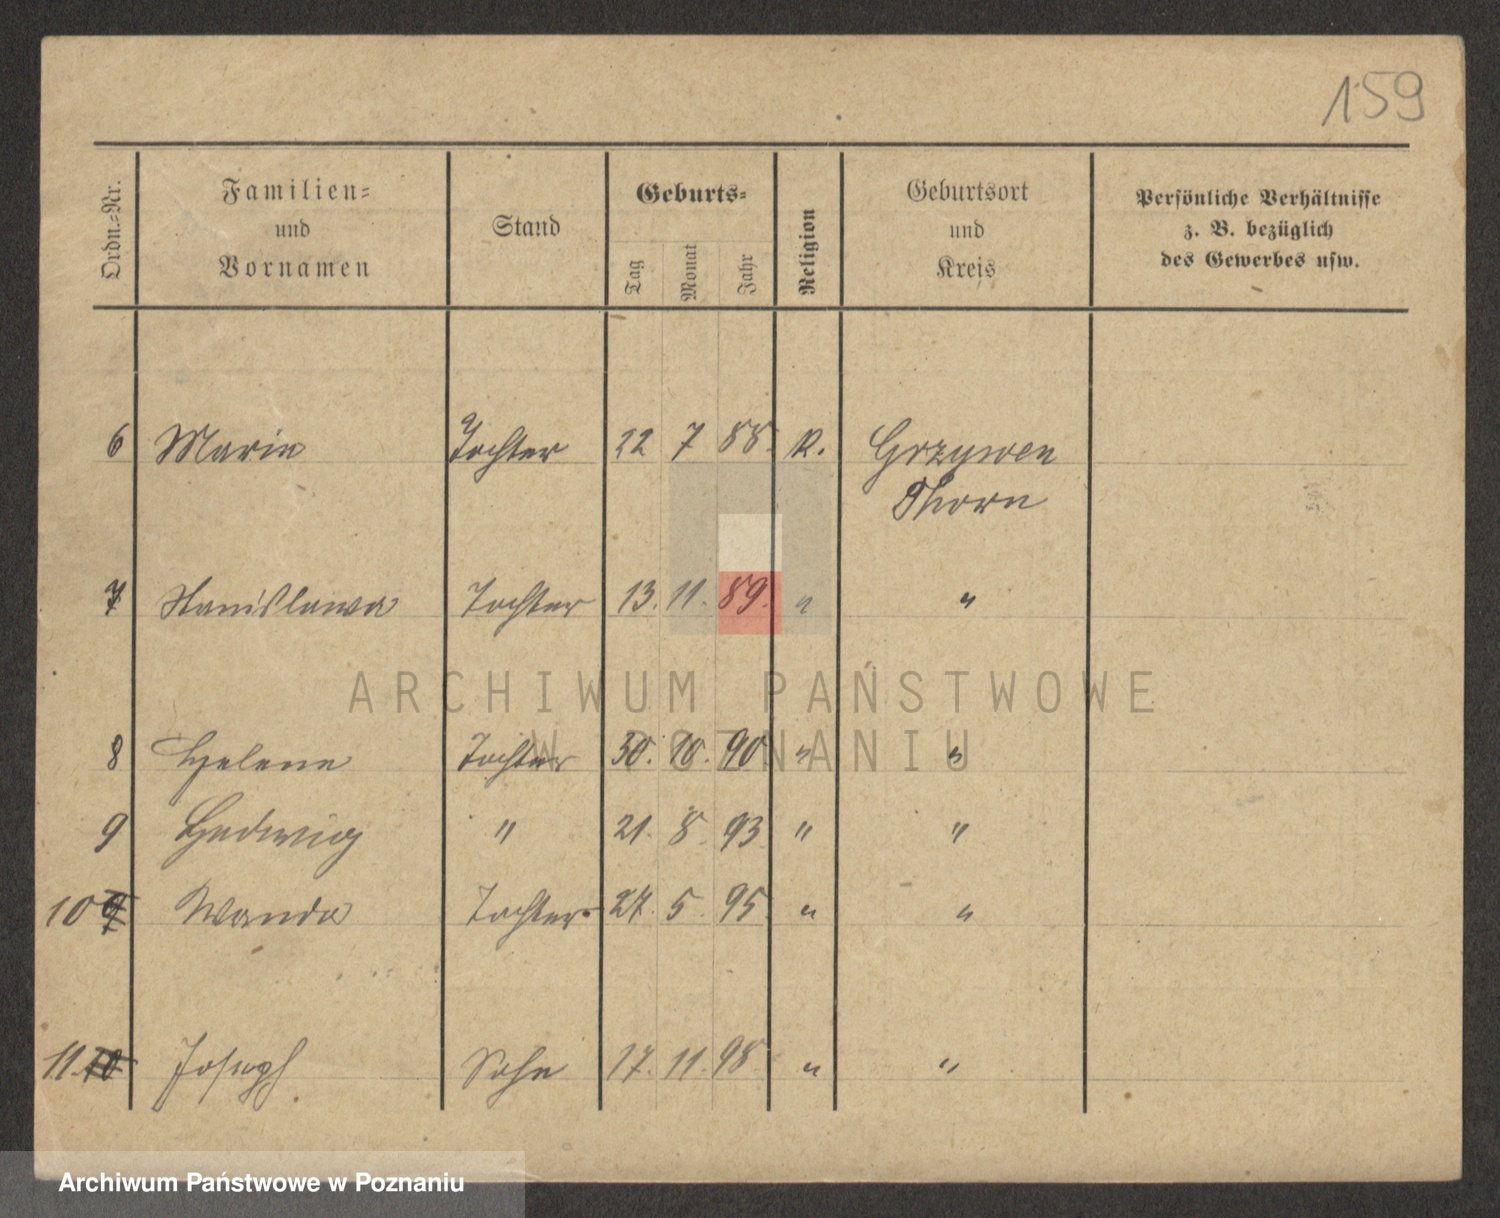 159
Ordn.=Nr. Familien= und Vornamen Stand Geburts= Tag Monat Jahr Religion Geburtsort und Kreis Persönliche Verhältnisse z. B. bezüglich des Gewerbes usw.
6 Marie Tochter 22 7 88. K. Grzywen
Thorn
7 Stanislawa Tochter 13. 11. 89. " "
ARCHIWUM PAŃSTWOWE
W POZNANIU
8 Helene Tochter 30. 10. 90 " "
9 Hedwig " 21. 8. 93 " "
10 9 Wanda Tochter 27. 5. 95. " "
11. 10 Joseph Sohn 17. 11. 98. " "
Archiwum Państwowe w Poznaniu